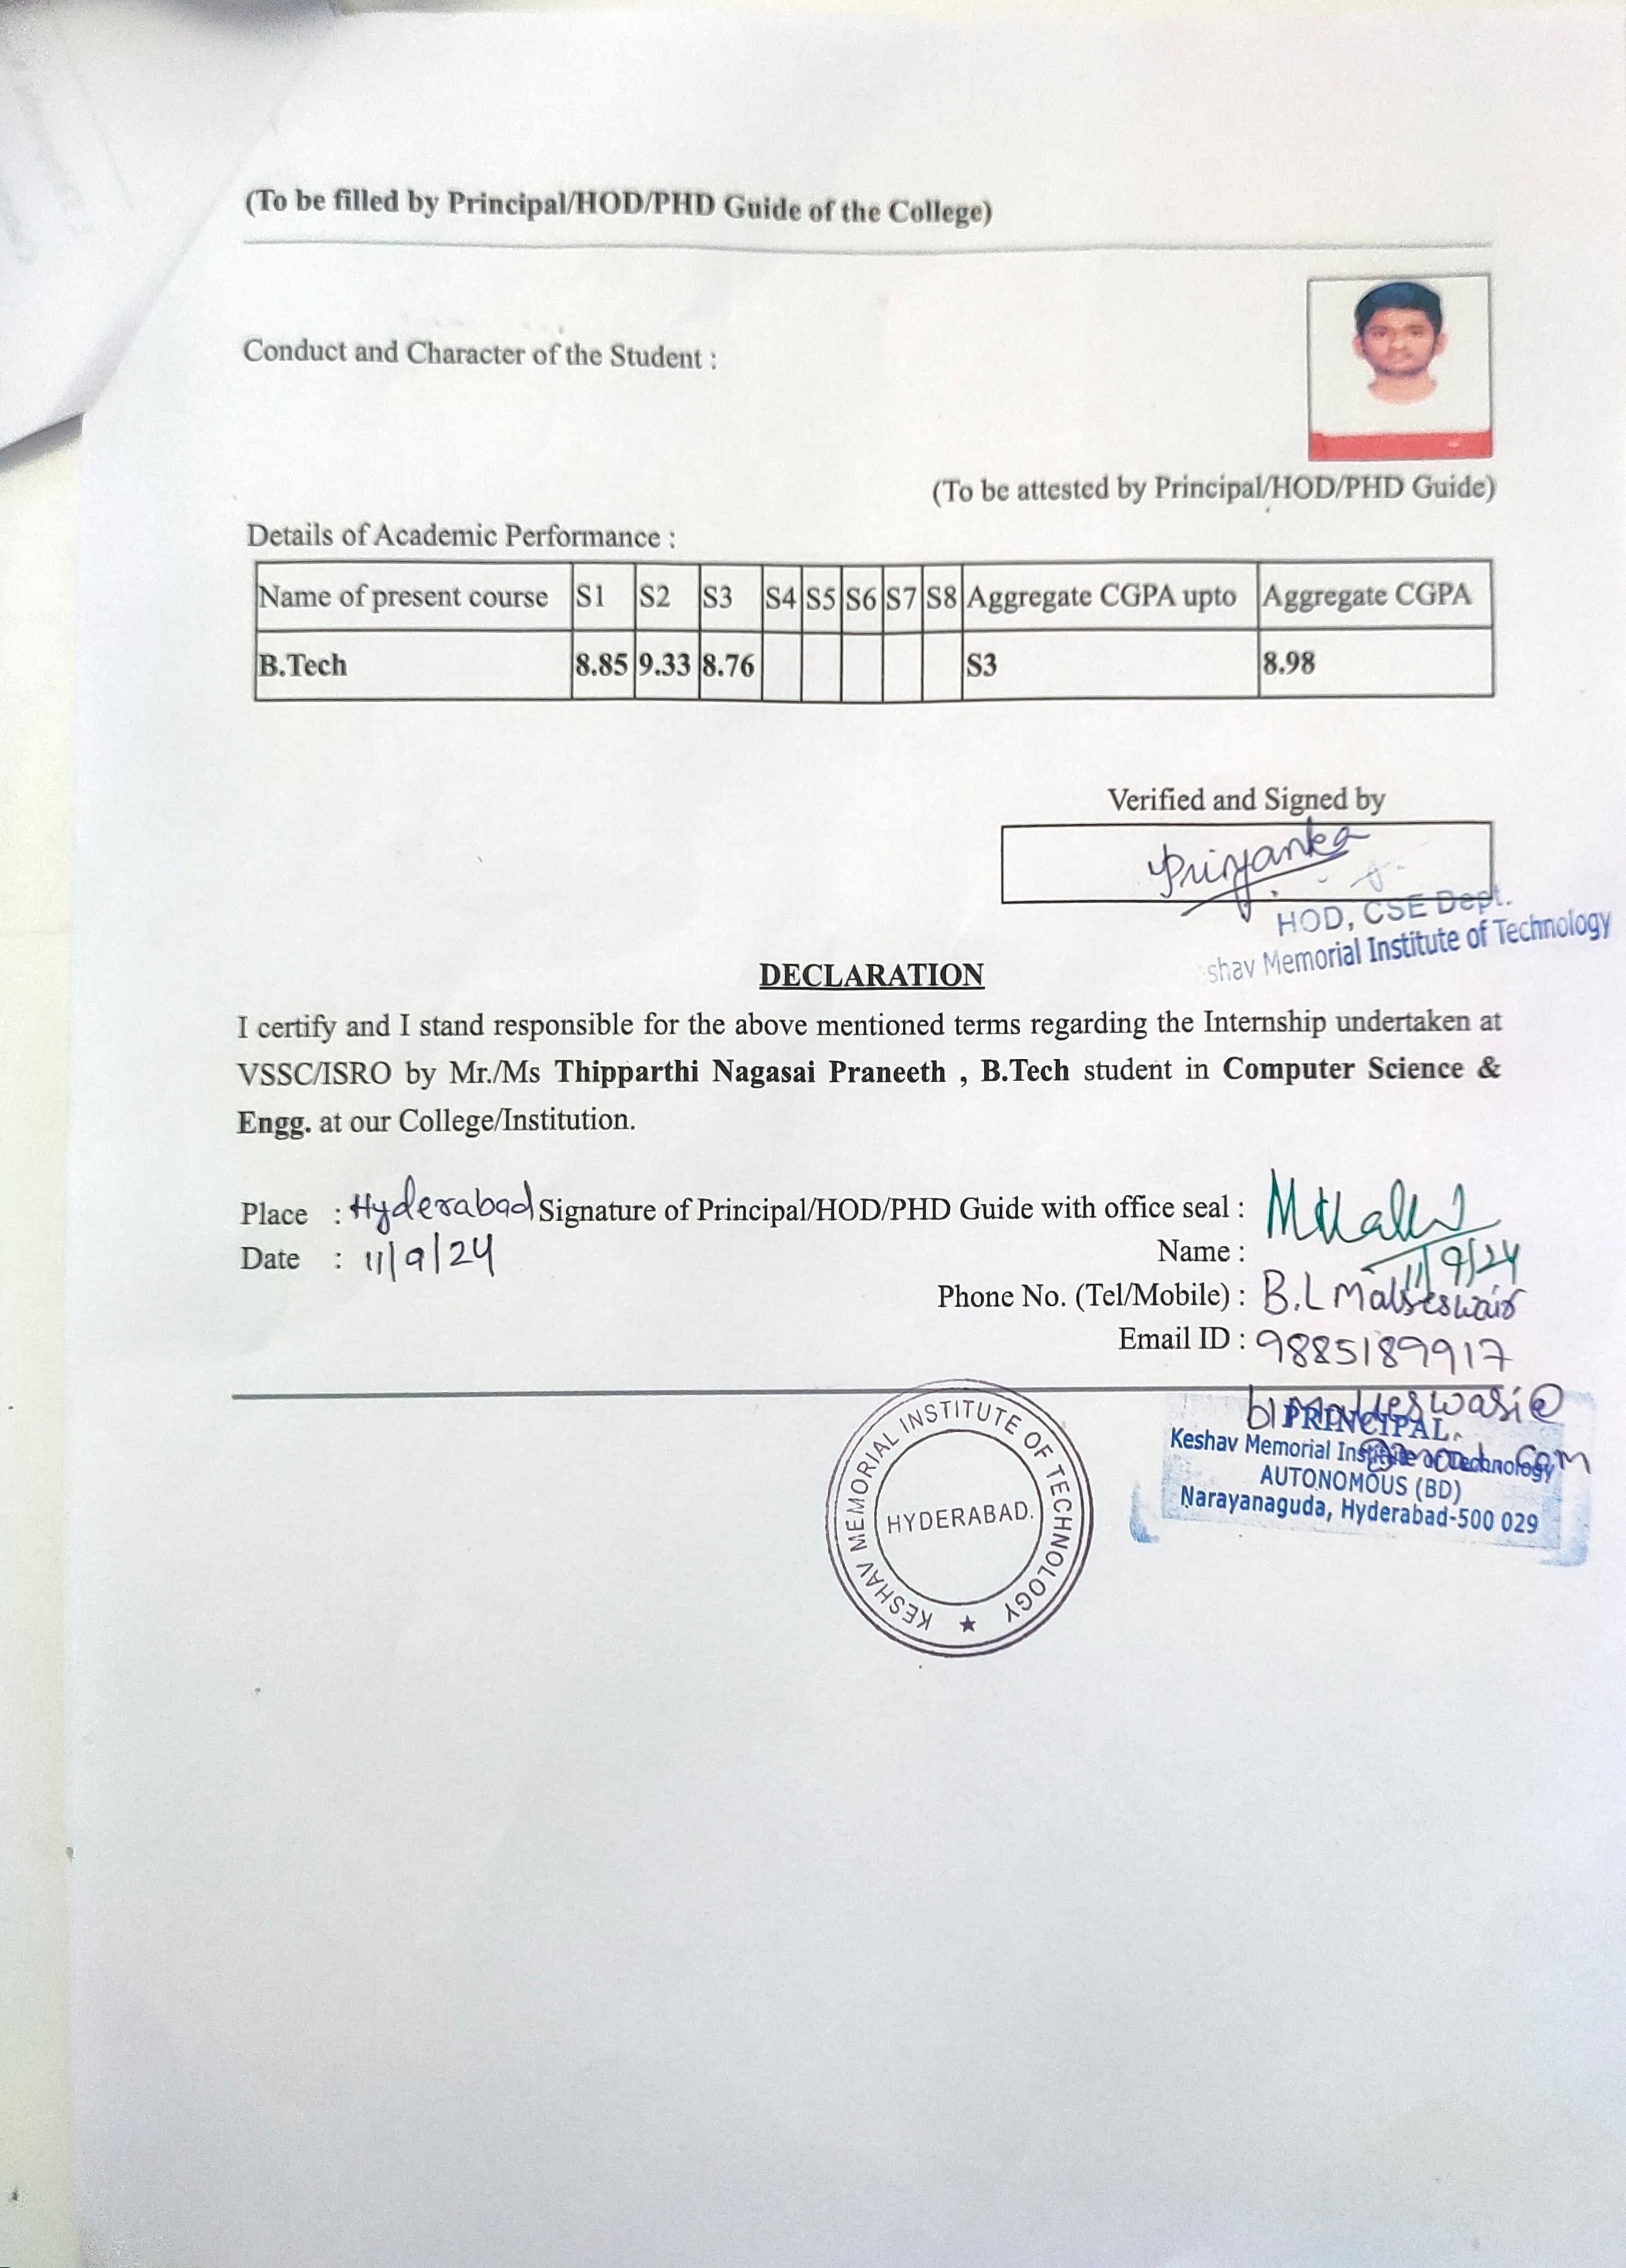 (To be filled by Principal/HOD/PHD Guide of the College)
Conduct and Character of the Student :
(To be attested by Principal/HOD/PHD Guide)
Details of Academic Performance :
Name of present course S1 S2 S3 S4 S5 S6 S7 S8 Aggregate CGPA upto Aggregate CGPA
B.Tech 8.85 9.33 8.76 S3 8.98
Verified and Signed by
Priyanka
HOD, CSE Dept.
shav Memorial Institute of Technology
DECLARATION
I certify and I stand responsible for the above mentioned terms regarding the Internship undertaken at
VSSC/ISRO by Mr./Ms Thipparthi Nagasai Praneeth , B.Tech student in Computer Science &
Engg. at our College/Institution.
Place : Hyderabad Signature of Principal/HOD/PHD Guide with office seal :
Date : 11/9/24 Name : 11/9/24
Phone No. (Tel/Mobile) : B.L
Email ID : 9885189917
PRINCIPAL
Keshav Memorial Institute of Technology
AUTONOMOUS (BD)
Narayanaguda, Hyderabad-500 029
KESHAV MEMORIAL INSTITUTE OF TECHNOLOGY ★
HYDERABAD.